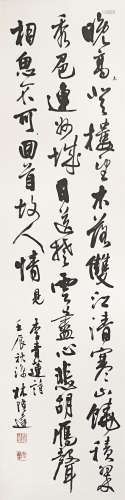 晚高登樓望木落雙江清寒山饒積翠
秀色連州城目送楚雲盡心悲胡雁聲
相思不可回首故人情
見 李青蓮詩
壬辰秋 林